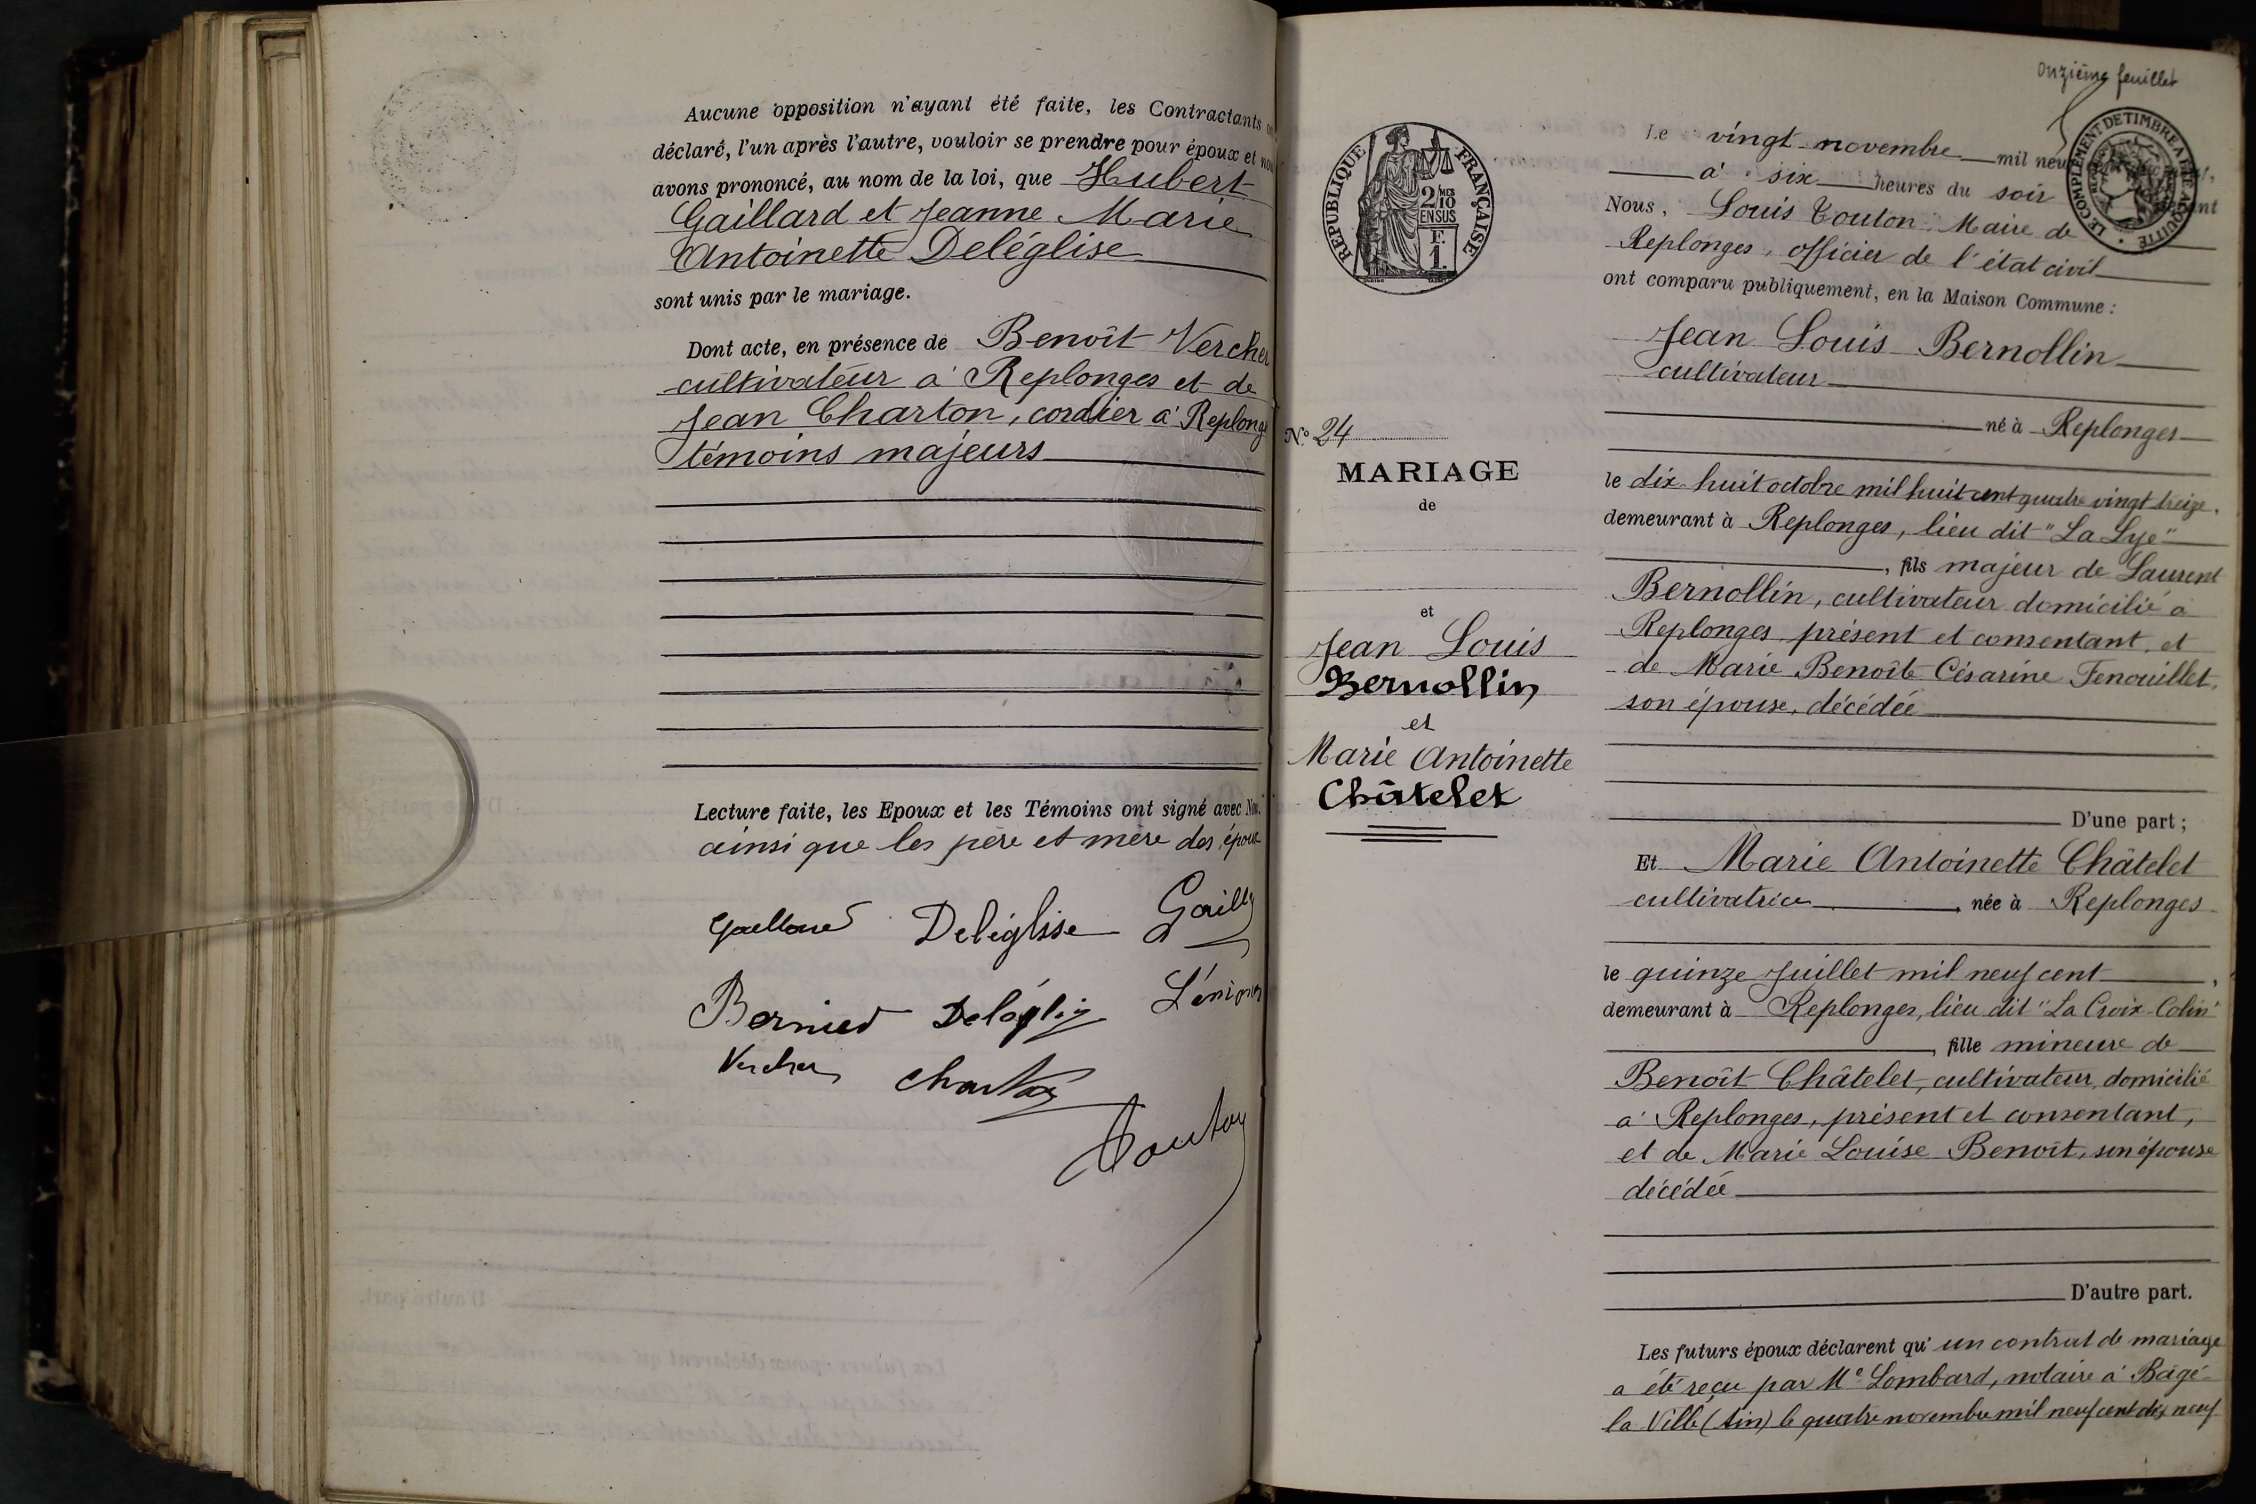 Aucune opposition n'ayant été faite, les Contractants
déclaré, l'un après l'autre, vouloir se prendre pour époux et nous
avons prononcé, au nom de la loi, que Hubert
Gaillard et Jeanne Marie
Antoinette Deléglise
sont unis par le mariage.
Dont acte, en présence de Benoît Vercher
cultivateur à Replonges et de
Jean Charton, cordier à Replonge
témoins majeurs
Lecture faite, les Epoux et les Témoins ont signé avec Nous
ainsi que les père et mère des époux
Deléglise
Charton
Touton
Onzième feuillet
REPUBLIQUE FRANÇAISE
2/10
EN SUS
F.
1.
LE COMPLÉMENT DE TIMBRE A ÉTÉ ACQUITTÉ
N° 24
MARIAGE
de
et
Jean Louis
Bernollin
et
Marie Antoinette
Châtelet
Le vingt novembre mil neuf
à six heures du soir
Nous, Louis Touton Maire de
Replonges, officier de l'état civil
ont comparu publiquement, en la Maison Commune :
Jean Louis Bernollin
cultivateur
né à Replonges
le dix huit octobre mil huit cent quatre vingt treize,
demeurant à Replonges, lieu dit "La Lye"
, fils majeur de Laurent
Bernollin, cultivateur domicilié à
Replonges présent et consentant, et
de Marie Benoîte Césarine Fenouillet,
son épouse, décédée
D'une part ;
Et Marie Antoinette Châtelet
cultivatrice , née à Replonges
le quinze Juillet mil neuf cent ,
demeurant à Replonges, lieu dit "La Croix-Colin"
, fille mineure de
Benoît Châtelet, cultivateur, domicilié
à Replonges, présent et consentant,
et de Marie Louise Benoît, son épouse
décédée
D'autre part.
Les futurs époux déclarent qu' un contrat de mariage
a été reçu par Me Lombard, notaire à Bâgé-
la Ville (Ain) le quatre novembre mil neuf cent dix neuf